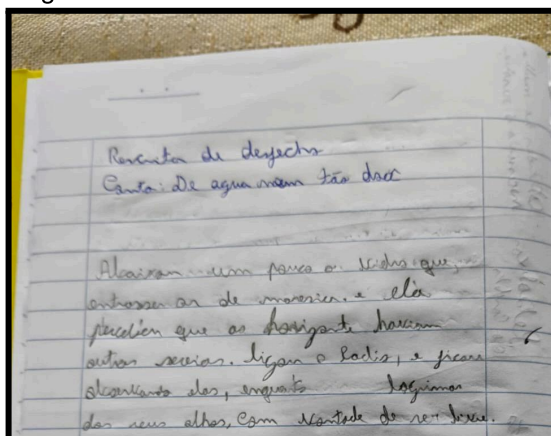 Rescrita de desfecho
Conto: De agua nem tão doce
Abaixou um pouco o vidro que,
entrasse ar de maresia. e ela
percebeu que ao horizonte haviam
outras sereias. ligou o Radio, e ficou
observando elas, enquanto lagrimas
dos seus olhos, com vontade de ser livre.